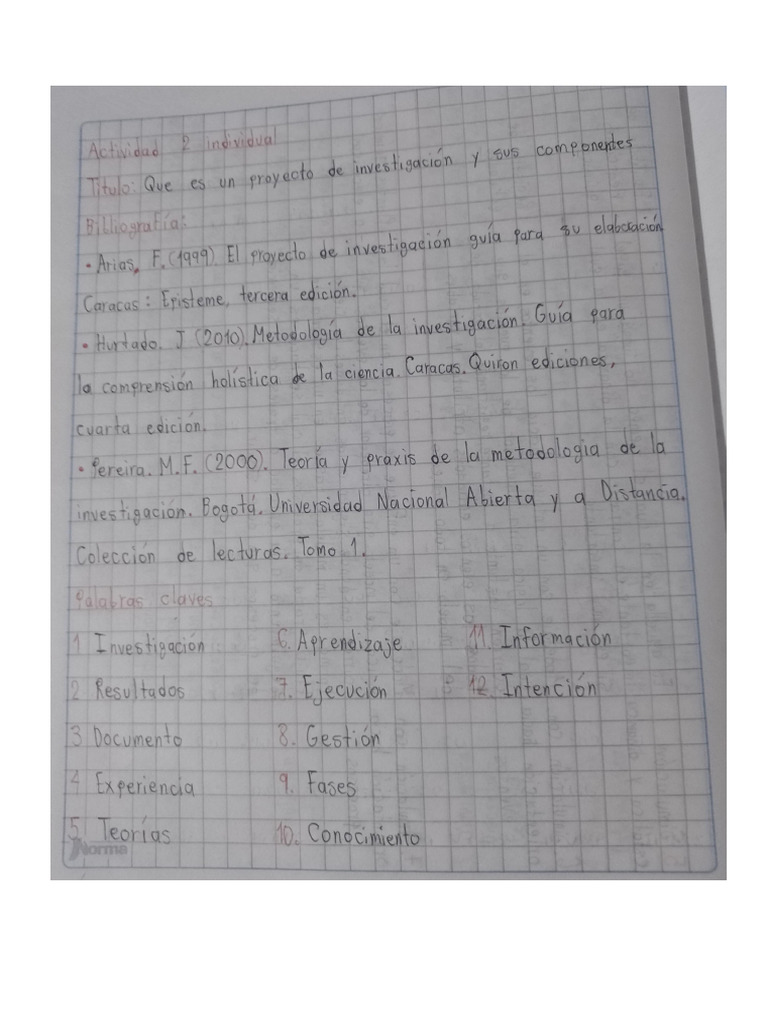 Actividad 2 individual
Titulo: Que es un proyecto de investigación y sus componentes
Billiografía:
• Arias, F. (1999) El proyecto de investigación guía para su elaboración
Caracas: Episteme, tercera edición.
• Hurtado. J (2010). Metodología de la investigación. Guía para
la comprensión holística de la ciencia. Caracas. Quiron ediciones,
cuarta edición.
• Pereira. M.F. (2000). Teoría y praxis de la metodologia de la
investigación. Bogotá. Universidad Nacional Abierta y a Distancia.
Colección de lecturas. Tomo 1.
Palabras claves
1 Investigación 6. Aprendizaje 11. Información
2 Resultados 7. Ejecución 12. Intención
3 Documento 8. Gestión
4 Experiencia 9. Fases
5. Teorías 10. Conocimiento
Norma